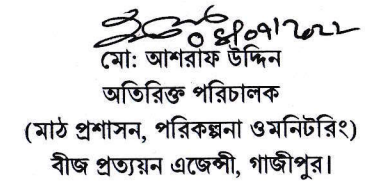 মো: আশরাফ উদ্দিন
অতিরিক্ত পরিচালক
(মাঠ প্রশাসন, পরিকল্পনা ওমনিটরিং)
বীজ প্রত্যয়ন এজেন্সী, গাজীপুর।